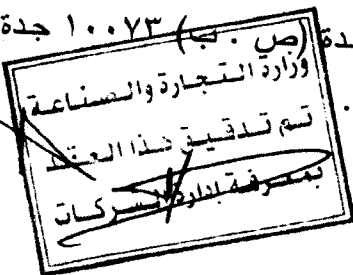 جدة (ص . ب) ١٠٠٧٣ جدة
وزارة التجارة والصناعة
تم تدقيق هذا العقد
بمعرفة إدارة الشركات